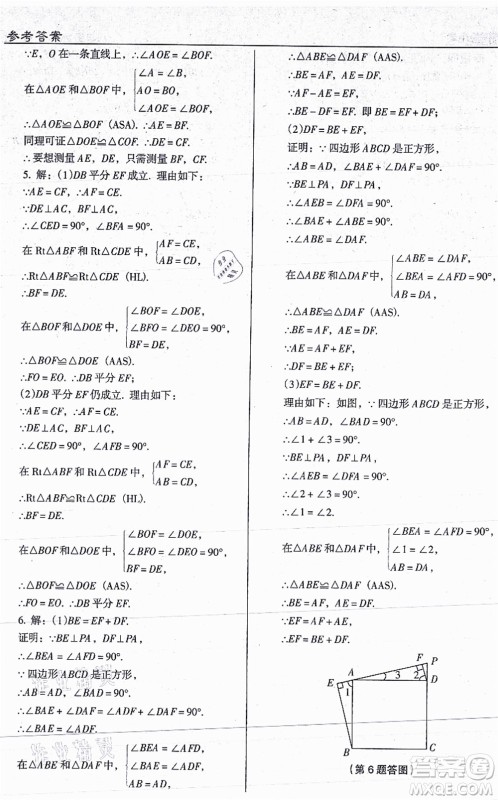 参考答案
∵E，O在一条直线上，∴∠AOE=∠BOF.
在△AOE和△BOF中，{∠A=∠B，
AO=BO，
∠AOE=∠BOF，
∴△AOE≌△BOF (ASA). ∴AE=BF.
同理可证△DOE≌△COF. ∴DE=CF.
∴要想测量AE，DE，只需测量BF，CF即可.
5. 解：(1)DB平分EF成立. 理由如下：
∵AE=CF，∴AF=CE.
∵DE⊥AC，BF⊥AC，
∴∠CED=90°，∠BFA=90°.
在Rt△ABF和Rt△CDE中，{AF=CE，
AB=CD，
∴Rt△ABF≌Rt△CDE (HL).
∴BF=DE.
在△BOF和△DOE中，{∠BOF=∠DOE，
∠BFO=∠DEO=90°，
BF=DE，
∴△BOF≌△DOE (AAS).
∴FO=EO. ∴DB平分EF；
(2)DB平分EF仍成立. 理由如下：
∵AE=CF，∴AF=CE.
∵DE⊥AC，BF⊥AC，
∴∠CED=90°，∠AFB=90°.
在Rt△ABF和Rt△CDE中，{AF=CE，
AB=CD，
∴Rt△ABF≌Rt△CDE (HL).
∴BF=DE.
在△BOF和△DOE中，{∠BOF=∠DOE，
∠BFO=∠DEO=90°，
BF=DE，
∴△BOF≌△DOE (AAS).
∴FO=EO. ∴DB平分EF.
6. 解：(1)BE=EF+DF.
证明：∵BE⊥PA，DF⊥PA，
∴∠BEA=∠AFD=90°.
∵四边形ABCD是正方形，
∴AB=AD，∠BAD=90°.
∴∠BAE=∠ADF.
在△ABE和△DAF中，{∠BEA=∠AFD，
∠BAE=∠ADF，
AB=DA，
∴△ABE≌△DAF (AAS).
∴BE=AF，AE=DF.
∴BE-DF=EF. 即BE=EF+DF；
(2)DF=BE+EF，
证明：∵四边形ABCD是正方形，
∴AB=DA，∠BAE+∠DAF=90°.
∵BE⊥PA，DF⊥PA，
∴∠AEB=∠DFA=90°.
∴∠BAE+∠ABE=90°.
∴∠ABE=∠DAF.
在△ABE和△DAF中，{∠ABE=∠DAF，
∠BEA=∠AFD=90°，
AB=DA，
∴△ABE≌△DAF (AAS).
∴BE=AF，AE=DF.
∵AE=AF+EF，
∴DF=BE+EF；
(3)EF=BE+DF.
理由如下：如图，∵四边形ABCD是正方形，
∴AB=AD，∠BAD=90°.
∴∠1+∠3=90°.
∵BE⊥PA，DF⊥PA，
∴∠BEA=∠AFD=90°.
∴∠2+∠3=90°.
∴∠1=∠2.
在△ABE和△DAF中，{∠BEA=∠AFD=90°，
∠1=∠2，
AB=DA，
∴△ABE≌△DAF (AAS).
∴AE=DF，BE=AF.
∵EF=AF+AE，
∴EF=BE+DF.
P
F
E
A
1
3
2
D
B
C
(第6题答图